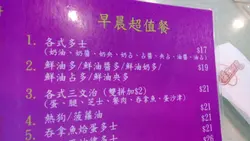 早晨超值餐
1. 各式多士 $17
(奶油、奶醬、奶央、奶占、占醬、央占、油醬、油占)
2. 鮮油多/鮮油醬多/鮮油奶多/ $19
鮮油占多/鮮油央多
3. 各式三文治 (雙拼加$2) $21
(蛋、腿、芝士、餐肉、吞拿魚、蛋沙律)
4. 熱狗/菠蘿油 $21
5. 吞拿魚烚蛋多士 $21
$28